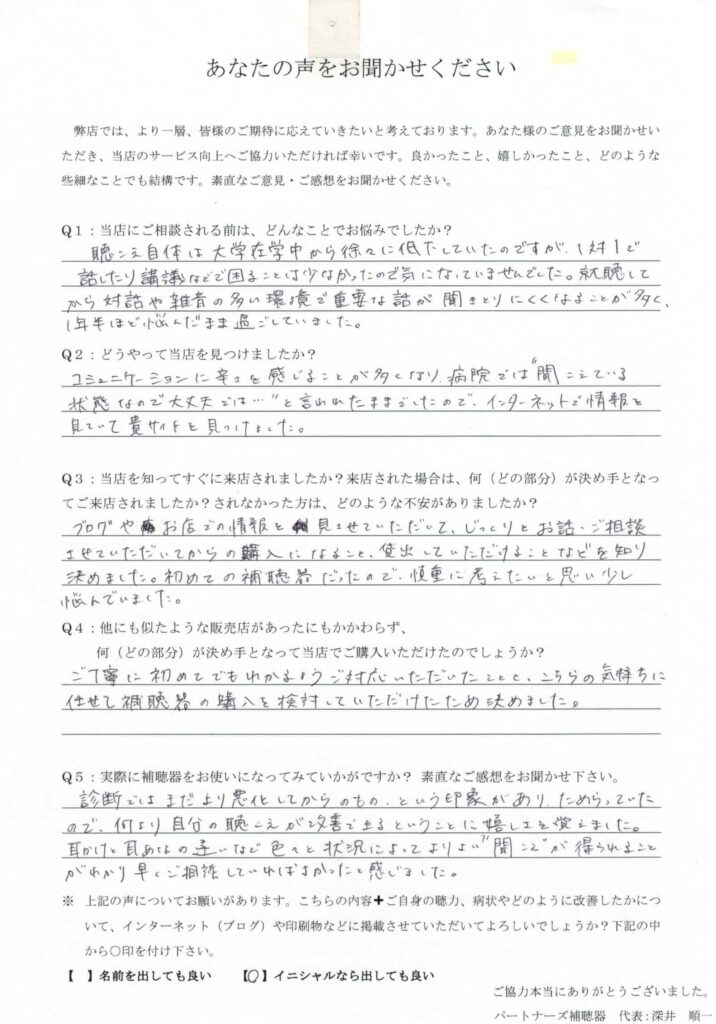 あなたの声をお聞かせください
弊店では、より一層、皆様のご期待に応えていきたいと考えております。あなた様のご意見をお聞かせい
ただき、当店のサービス向上へご協力いただければ幸いです。良かったこと、嬉しかったこと、どのような
些細なことでも結構です。素直なご意見・ご感想をお聞かせください。
Q1：当店にご相談される前は、どんなことでお悩みでしたか？
聴こえ自体は大学在学中から徐々に低下していたのですが、1対1で
話したり講議などで困ることは少なかったので気になっていませんでした。就職して
から対話や雑音の多い環境で重要な話が聞きとりにくくなることが多く、
1年半ほど悩んだまま過ごしていました。
Q2：どうやって当店を見つけましたか？
コミュニケーションに辛さを感じることが多くなり、病院では"聞こえている
状態なので大丈夫では…"と言われたままでしたので、インターネットで情報を
見ていて貴サイトを見つけました。
Q3：当店を知ってすぐに来店されましたか？来店された場合は、何（どの部分）が決め手となっ
てご来店されましたか？されなかった方は、どのような不安がありましたか？
ブログやお店での情報を見させていただいて、じっくりとお話・ご相談
させていただいてからの購入になること、貸出していただけることなどを知り
決めました。初めての補聴器だったので、慎重に考えたいと思い少し
悩んでいました。
Q4：他にも似たような販売店があったにもかかわらず、
何（どの部分）が決め手となって当店でご購入いただけたのでしょうか？
ご丁寧に初めてでもわかるようご対応いただいたことと、こちらの気持ちに
任せて補聴器の購入を検討していただけたため決めました。
Q5：実際に補聴器をお使いになってみていかがですか？ 素直なご感想をお聞かせ下さい。
診断ではまだより悪化してからのもの、という印象があり、ためらっていた
ので、何より自分の聴こえが改善できるということに嬉しさを覚えました。
耳かけと耳あなの違いなど色々と状況によってよりよい"聞こえ"が得られること
がわかり早くご相談していればよかったと感じました。
※ 上記の声についてお願いがあります。こちらの内容＋ご自身の聴力、病状やどのように改善したかにつ
いて、インターネット（ブログ）や印刷物などに掲載させていただいてよろしいでしょうか？下記の中
から〇印を付け下さい。
【　】名前を出しても良い　　【〇】イニシャルなら出しても良い
ご協力本当にありがとうございました。
パートナーズ補聴器　代表：深井　順一